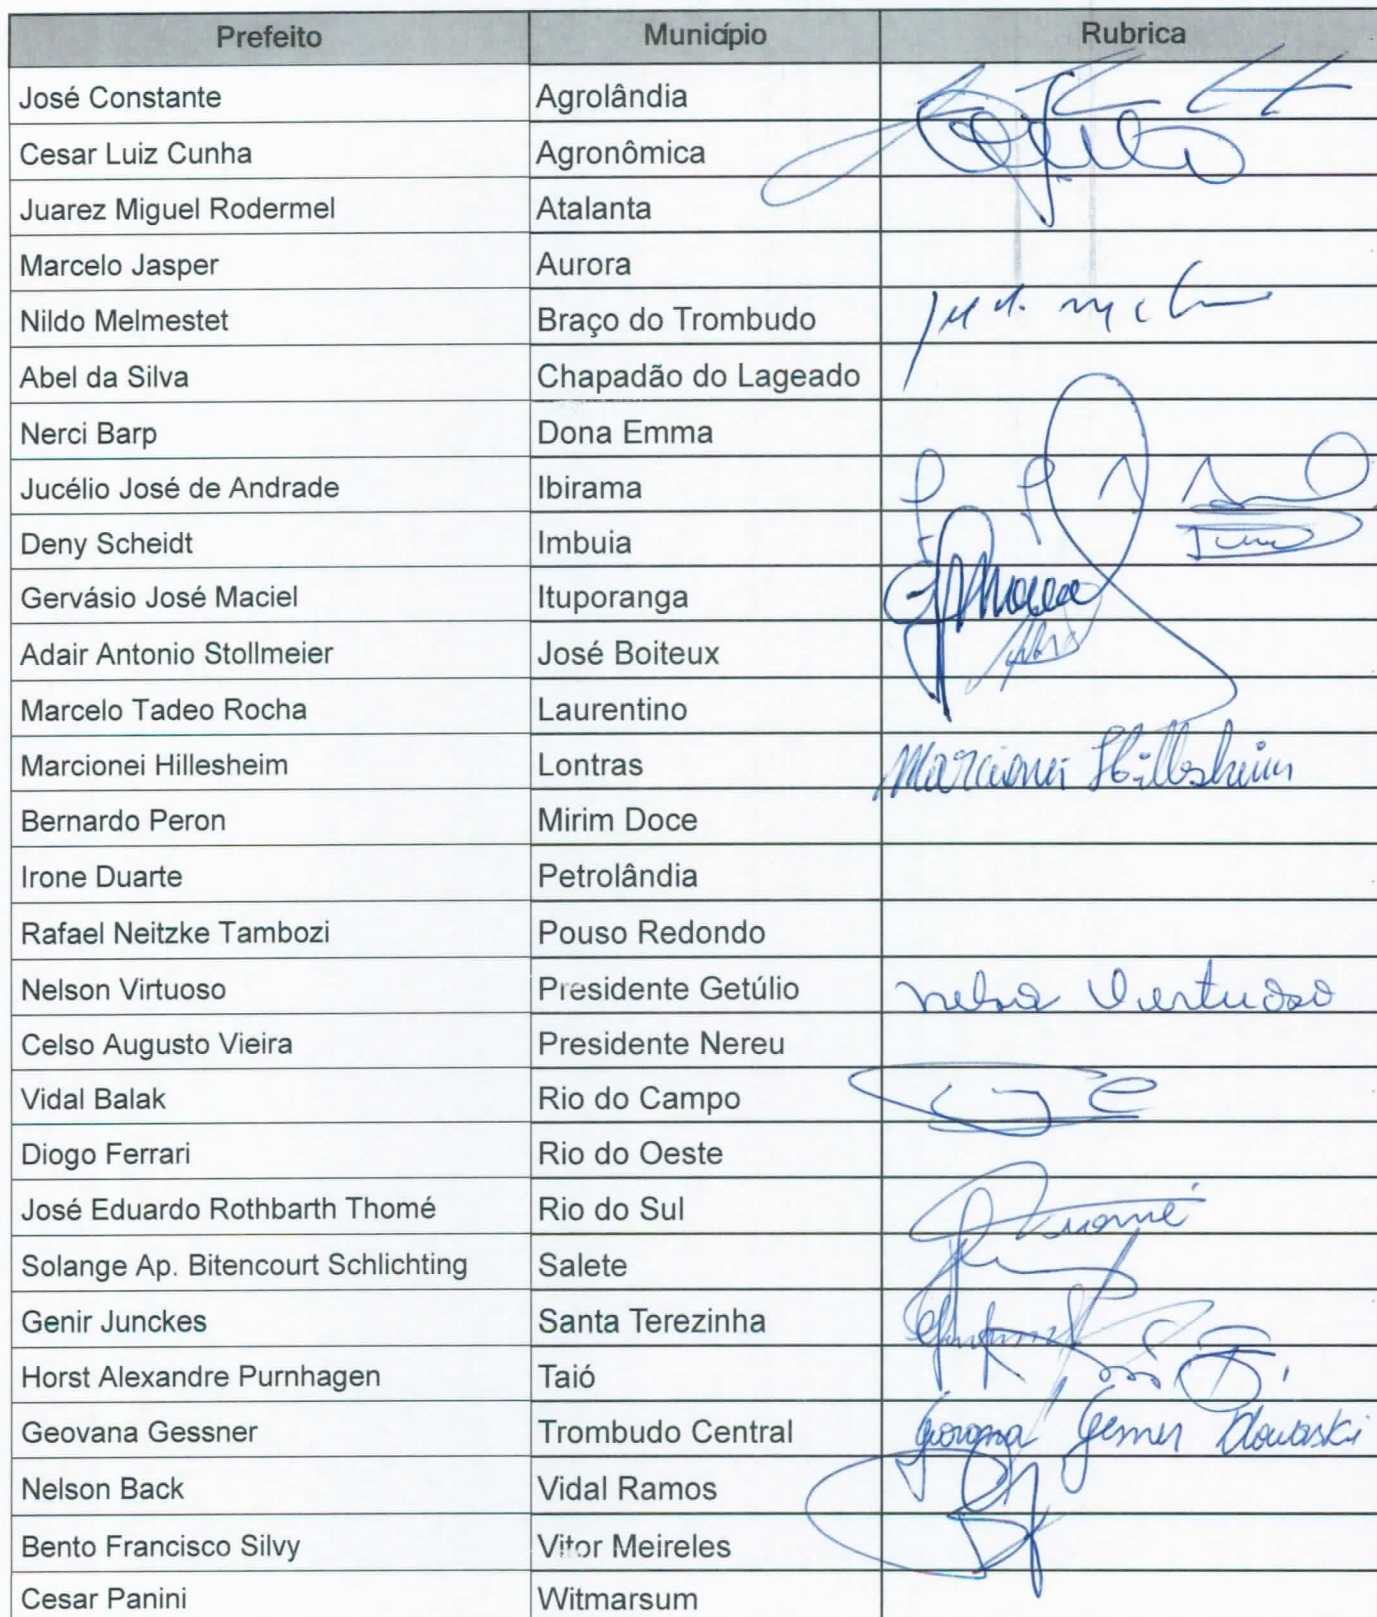 Prefeito Município Rubrica
José Constante Agrolândia
Cesar Luiz Cunha Agronômica
Juarez Miguel Rodermel Atalanta
Marcelo Jasper Aurora
Nildo Melmestet Braço do Trombudo
Abel da Silva Chapadão do Lageado
Nerci Barp Dona Emma
Jucélio José de Andrade Ibirama
Deny Scheidt Imbuia
Gervásio José Maciel Ituporanga
Adair Antonio Stollmeier José Boiteux
Marcelo Tadeo Rocha Laurentino
Marcionei Hillesheim Lontras Marcionei Hillesheim
Bernardo Peron Mirim Doce
Irone Duarte Petrolândia
Rafael Neitzke Tambozi Pouso Redondo
Nelson Virtuoso Presidente Getúlio
Celso Augusto Vieira Presidente Nereu
Vidal Balak Rio do Campo
Diogo Ferrari Rio do Oeste
José Eduardo Rothbarth Thomé Rio do Sul
Solange Ap. Bitencourt Schlichting Salete
Genir Junckes Santa Terezinha
Horst Alexandre Purnhagen Taió
Geovana Gessner Trombudo Central Geovana Gessner
Nelson Back Vidal Ramos
Bento Francisco Silvy Vitor Meireles
Cesar Panini Witmarsum